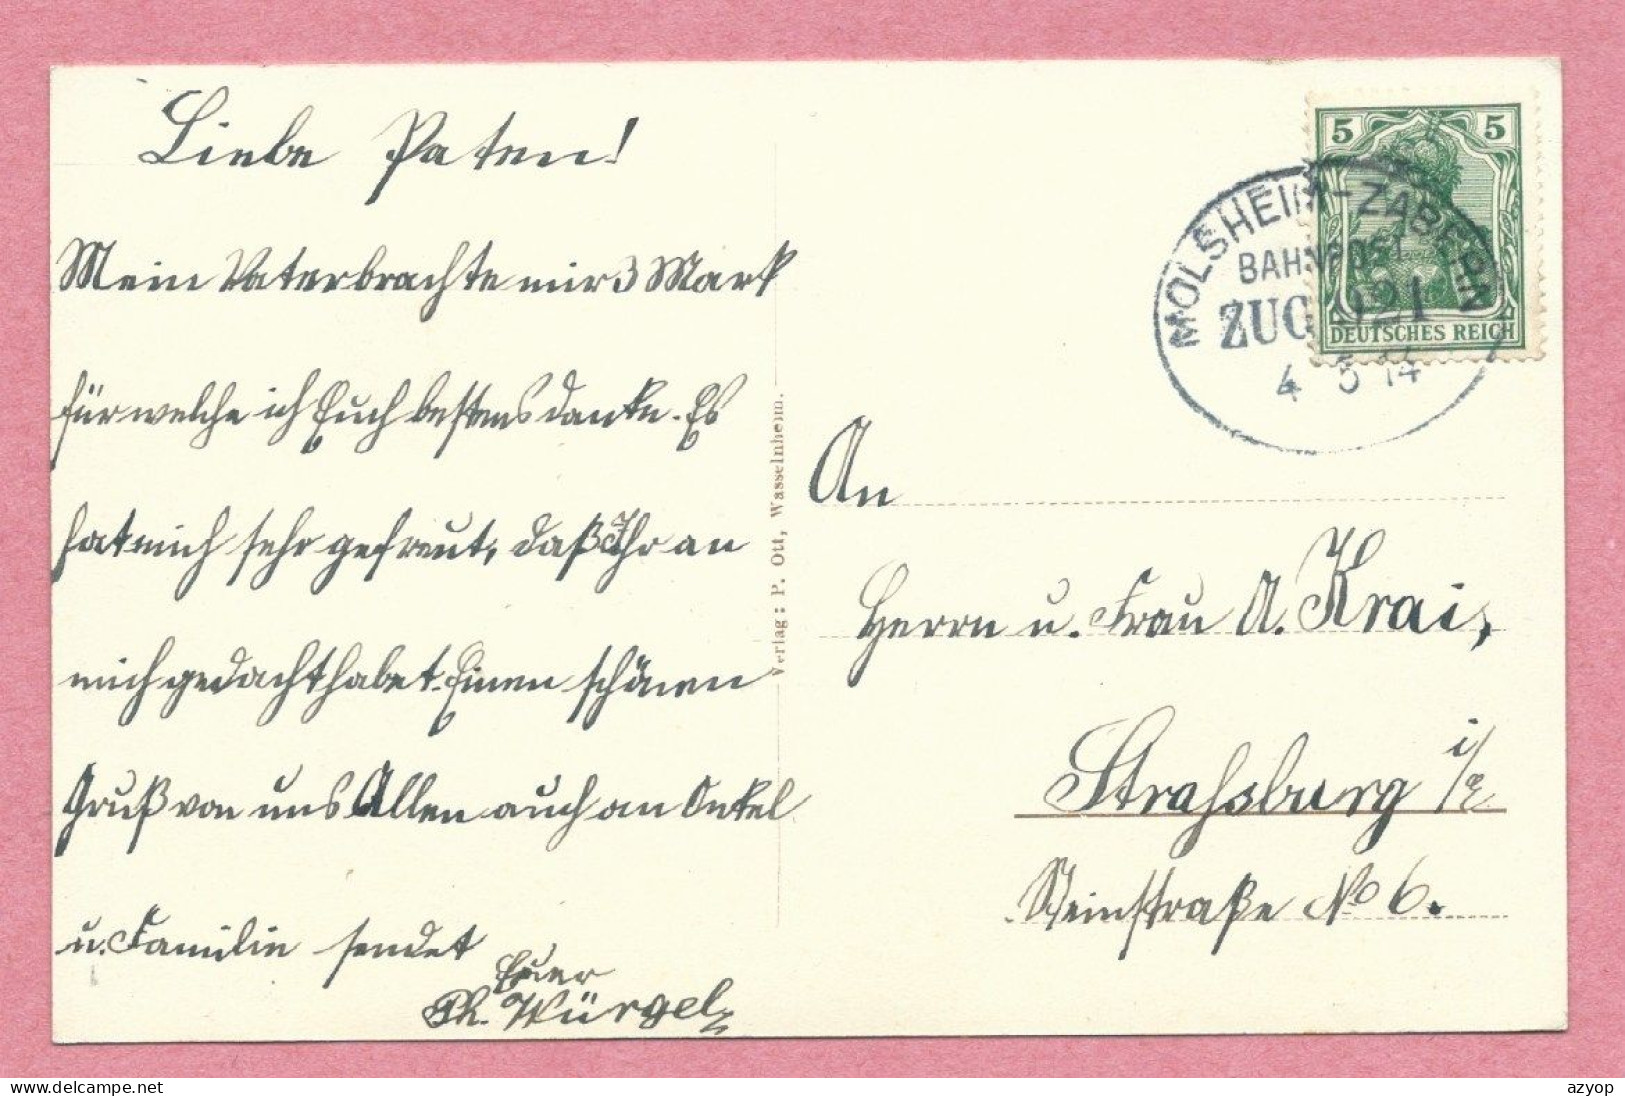 Liebe Paten!
Mein Vater brachte mir 3 Mark
für welche ich Euch bestens danke. Es
hat mich sehr gefreut, daß Ihr an
mich gedacht habet. Einen schönen
Gruß von uns Allen auch an Onkel
u. Familie sendet
Euer
Ph. Würgel
Verlag: P. Ott, Wasselnheim.
5 5
DEUTSCHES REICH
MOLSHEIM-ZABERN
BAHNPOST
ZUG 121
4 5 14
An
Herrn u. Frau A. Krai,
Strassburg i/E.
Steinstraße No 6.
delcampe.net
azyop